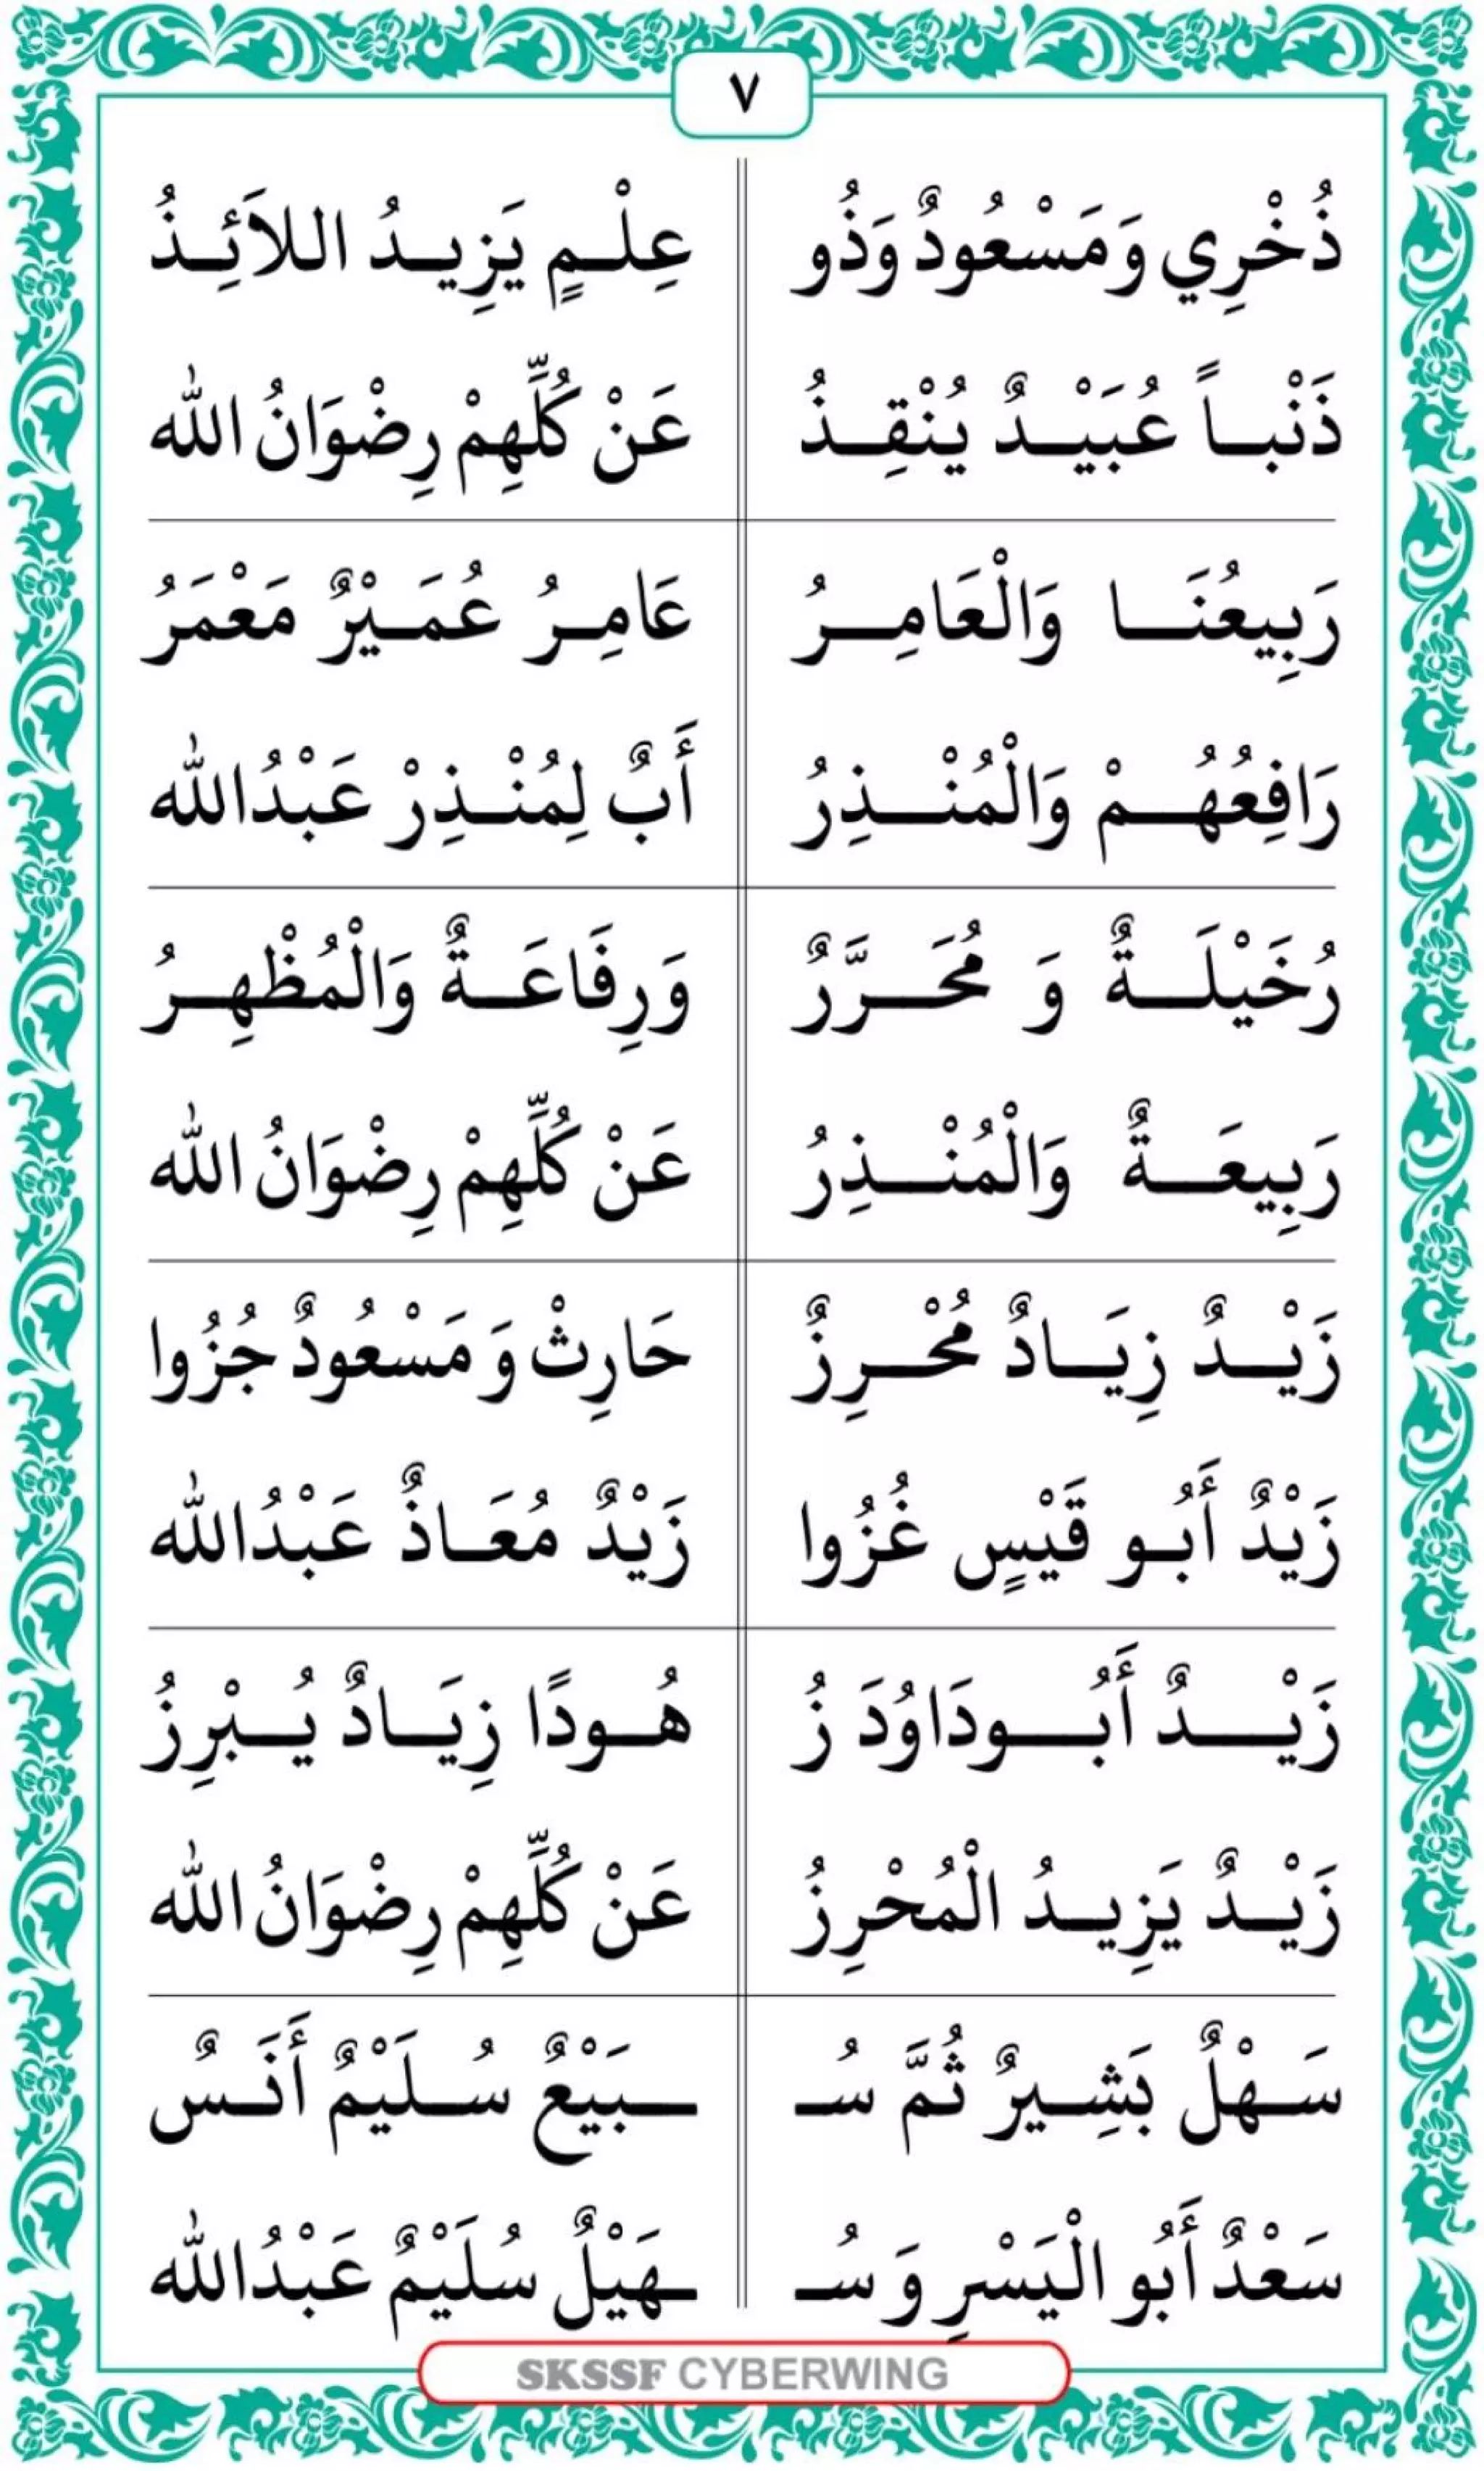 ٧
ذُخْرِي وَمَسْعُودٌ وَذُو عِلْمٍ يَزِيدُ اللاَئِذُ
ذَنْباً عُبَيْدٌ يُنْقِذُ عَنْ كُلِّهِمْ رِضْوَانُ الله
رَبِيعُنَا وَالْعَامِرُ عَامِرُ عُمَيْرٌ مَعْمَرُ
رَافِعُهُمْ وَالْمُنْذِرُ أَبٌ لِمُنْذِرْ عَبْدُالله
رُخَيْلَةٌ وَ مُحَرَّرٌ وَرِفَاعَةٌ وَالْمُظْهِرُ
رَبِيعَةٌ وَالْمُنْذِرُ عَنْ كُلِّهِمْ رِضْوَانُ الله
زَيْدٌ زِيَادٌ مُحْرِزٌ حَارِثْ وَ مَسْعُودٌ جُزُوا
زَيْدٌ أَبُو قَيْسٍ غُزُوا زَيْدٌ مُعَاذٌ عَبْدُالله
زَيْدٌ أَبُودَاوُدَ زُ هُودًا زِيَادٌ يُبْرِزُ
زَيْدٌ يَزِيدُ الْمُحْرِزُ عَنْ كُلِّهِمْ رِضْوَانُ الله
سَهْلٌ بَشِيرٌ ثُمَّ سُـ ـبَيْعٌ سُلَيْمٌ أَنَسٌ
سَعْدٌ أَبُو الْيَسْرِ وَ سُـ ـهَيْلٌ سُلَيْمٌ عَبْدُالله
SKSSF CYBERWING